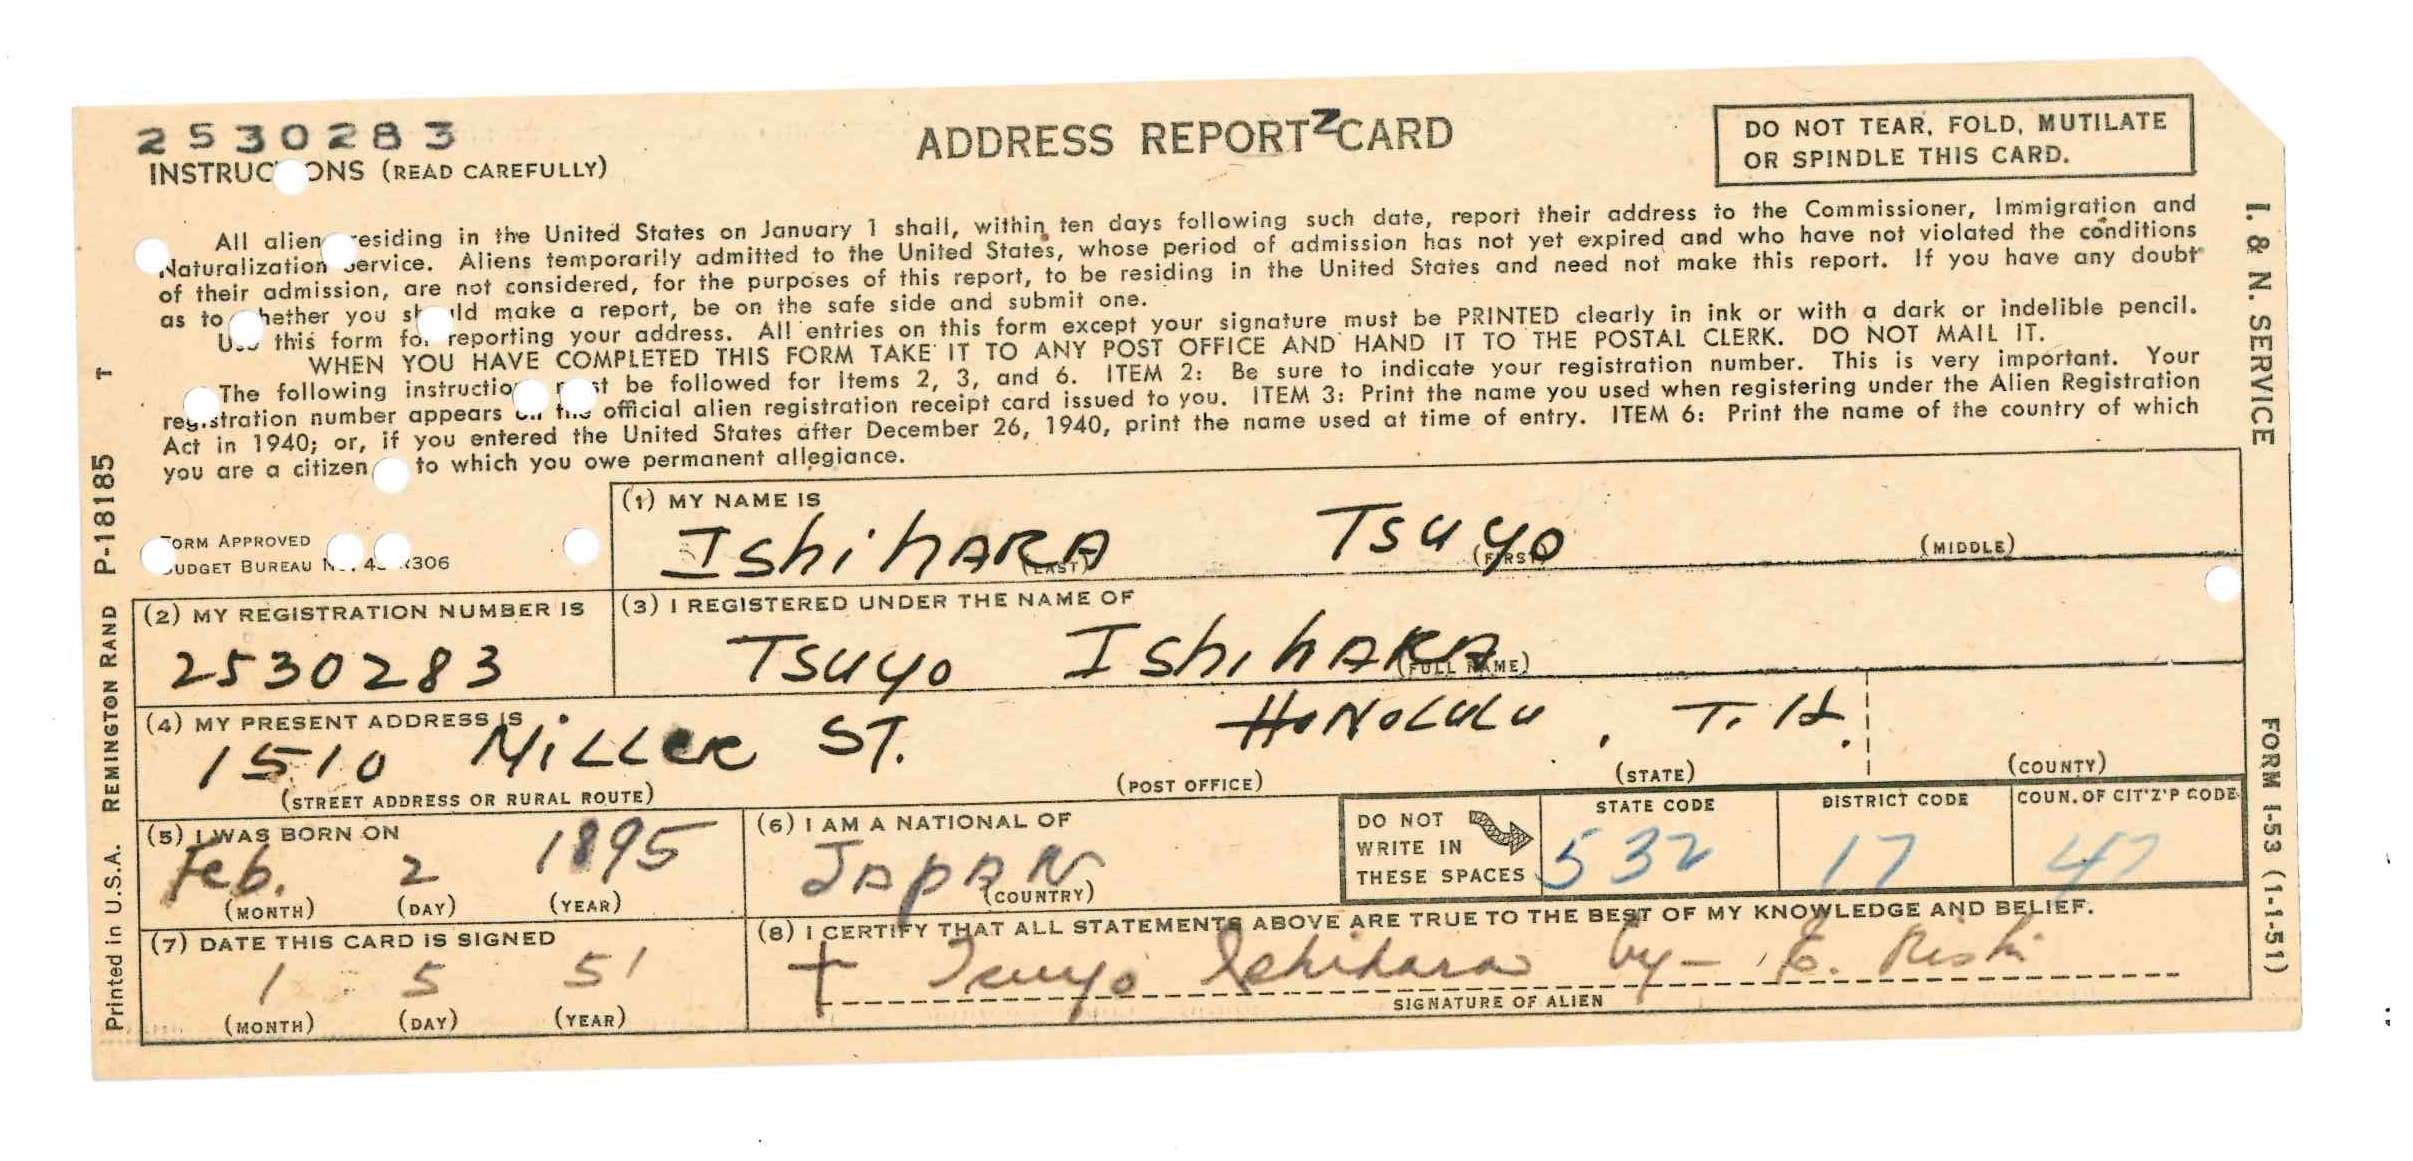 2530283
ADDRESS REPORT CARD
Z
DO NOT TEAR, FOLD, MUTILATE
OR SPINDLE THIS CARD.
INSTRUC ONS (READ CAREFULLY)
All alien esiding in the United States on January 1 shall, within ten days following such date, report their address to the Commissioner, Immigration and
Naturalization ervice. Aliens temporarily admitted to the United States, whose period of admission has not yet expired and who have not violated the conditions
of their admission, are not considered, for the purposes of this report, to be residing in the United States and need not make this report. If you have any doubt
as to hether you sh ld make a report, be on the safe side and submit one.
Use this form for reporting your address. All entries on this form except your signature must be PRINTED clearly in ink or with a dark or indelible pencil.
WHEN YOU HAVE COMPLETED THIS FORM TAKE IT TO ANY POST OFFICE AND HAND IT TO THE POSTAL CLERK. DO NOT MAIL IT.
The following instructio m st be followed for Items 2, 3, and 6. ITEM 2: Be sure to indicate your registration number. This is very important. Your
registration number appears on the official alien registration receipt card issued to you. ITEM 3: Print the name you used when registering under the Alien Registration
Act in 1940; or, if you entered the United States after December 26, 1940, print the name used at time of entry. ITEM 6: Print the name of the country of which
you are a citizen to which you owe permanent allegiance.
FORM APPROVED
BUDGET BUREAU No. 43 R306
(1) MY NAME IS
IShihARA TSuyo
(LAST) (FIRST) (MIDDLE)
(2) MY REGISTRATION NUMBER IS
2530283
(3) I REGISTERED UNDER THE NAME OF
TSuyo IShihARA
(FULL NAME)
(4) MY PRESENT ADDRESS IS
1510 MiLLER ST. HoNoLuLu, T.H.
(STREET ADDRESS OR RURAL ROUTE) (POST OFFICE) (STATE) (COUNTY)
(5) I WAS BORN ON
Feb. 2 1895
(MONTH) (DAY) (YEAR)
(6) I AM A NATIONAL OF
JAPAN
(COUNTRY)
DO NOT
WRITE IN
THESE SPACES
STATE CODE
532
DISTRICT CODE
17
COUN. OF CIT'Z'P CODE
47
(7) DATE THIS CARD IS SIGNED
1 5 51
(MONTH) (DAY) (YEAR)
(8) I CERTIFY THAT ALL STATEMENTS ABOVE ARE TRUE TO THE BEST OF MY KNOWLEDGE AND BELIEF.
Tsuyo Ishihara by –
SIGNATURE OF ALIEN
Printed in U.S.A. REMINGTON RAND P-18185 T
I. & N. SERVICE
FORM I-53 (1-1-51)